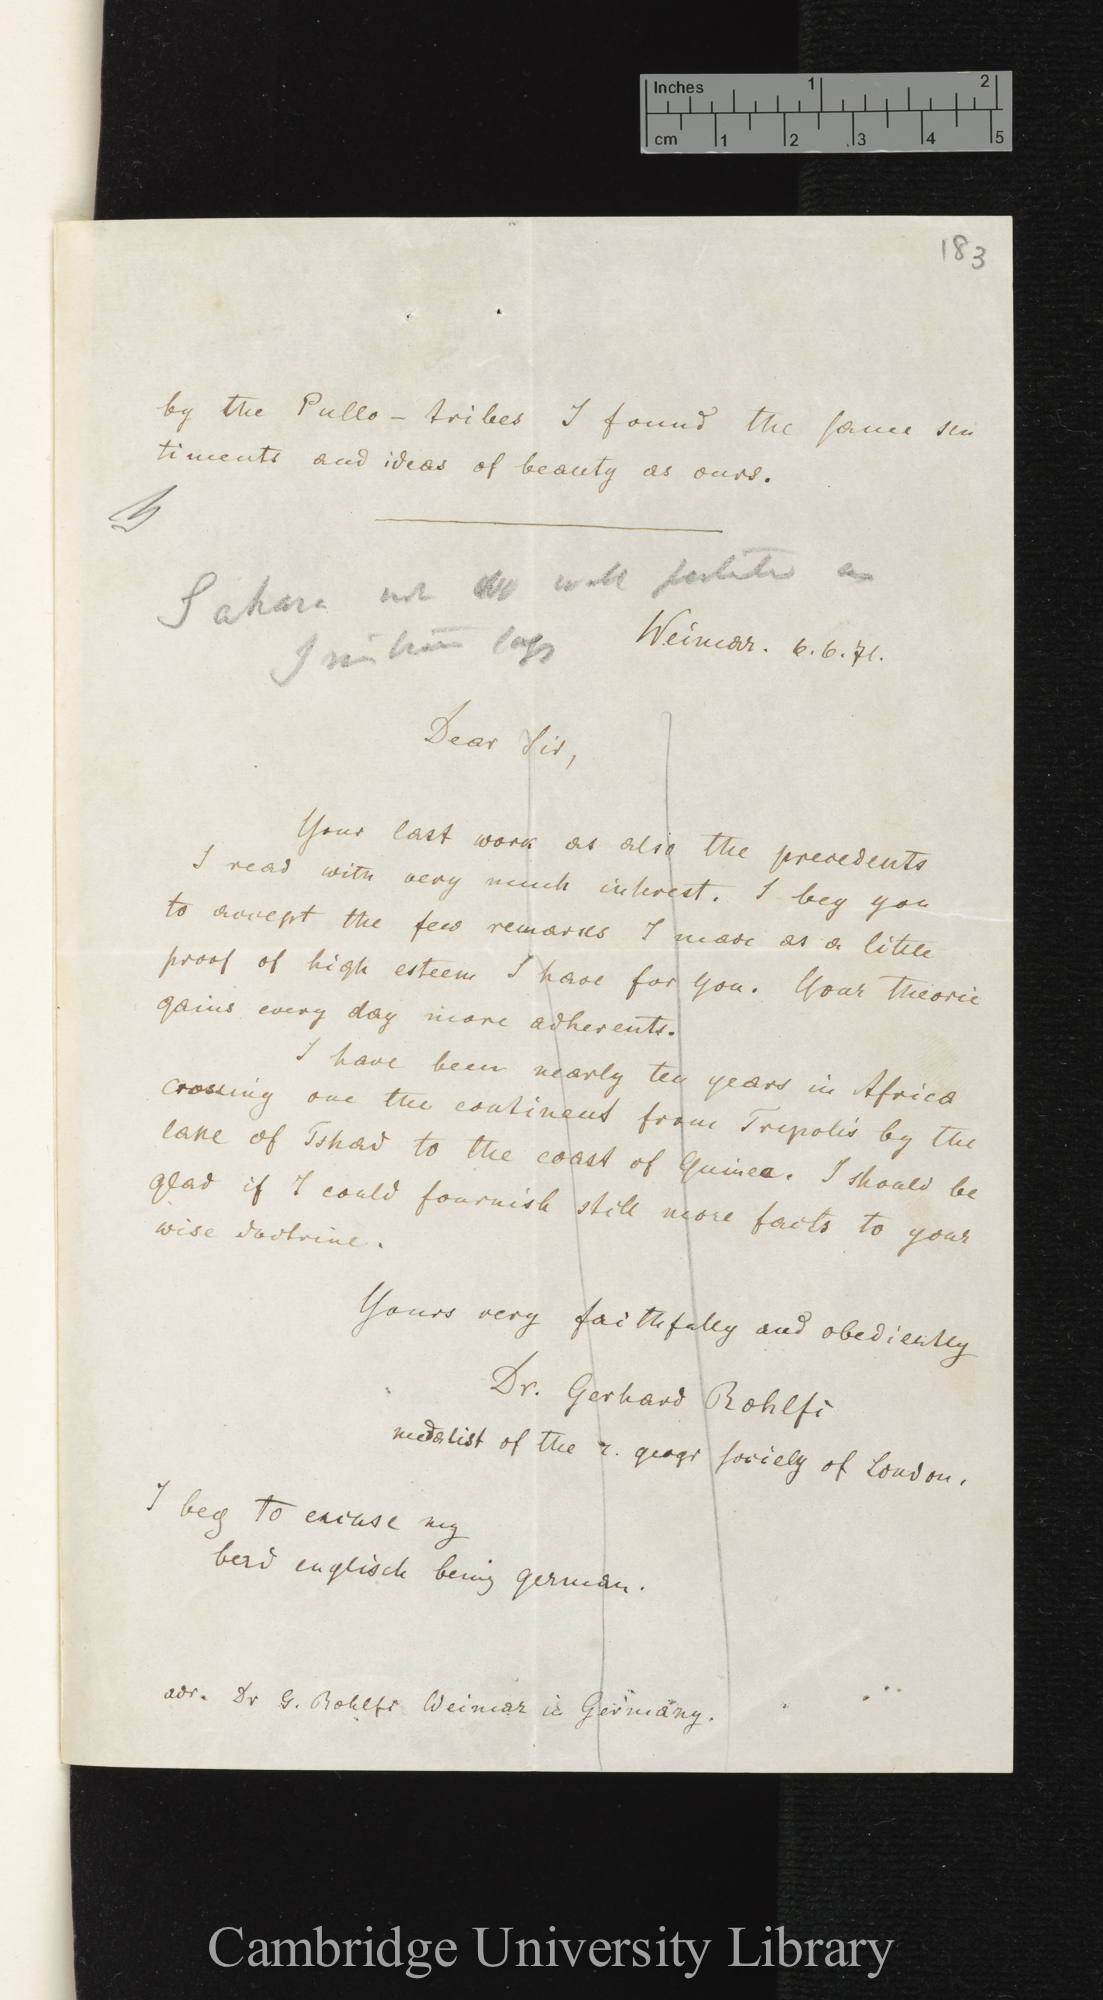 Inches 1 2
cm 1 2 3 4 5
183
by the Pullo - tribes I found the same sen
timents and ideas of beauty as ours.
Sahara not well
Weimar. 6.6.71.
Dear Sir,
Your last work as also the precedents
I read with very much interest. I beg you
to accept the few remarks I made as a little
proof of high esteem I have for you. Your theorie
gains every day more adherents.
I have been nearly ten years in Africa
crossing one the continent from Tripolis by the
lake of Tshad to the coast of Guinea. I should be
glad if I could fournish still more facts to your
wise doctrine.
Yours very faithfully and obediently
Dr. Gerhard Rohlfs
medalist of the r. geogr society of London.
I beg to excuse my
bad englisch being german.
adr. Dr G. Rohlfs Weimar in Germany.
Cambridge University Library